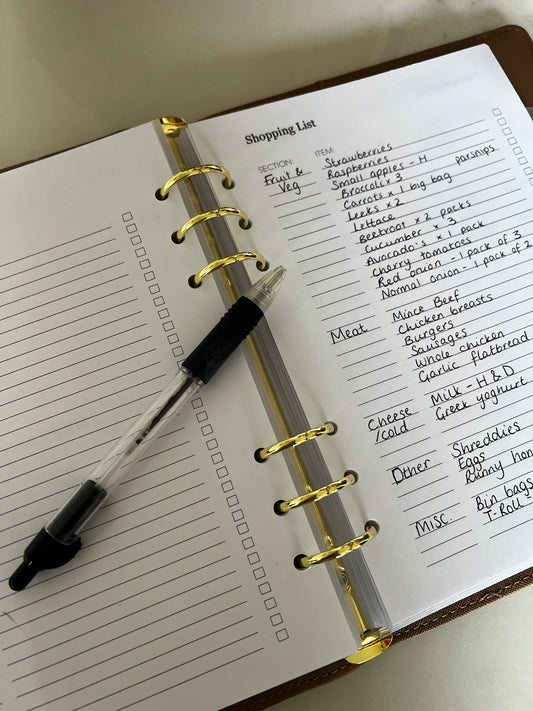 Shopping List
SECTION: ITEM:
Fruit & Strawberries
Veg Raspberries
Small apples - H
Broccoli x 3 parsnips
Carrots x 1 big bag
Leeks x 2
Lettace
Beetroot x 2 packs
Cucumber x 3
Avocado's x 1 pack
Cherry tomatoes
Red onion - 1 pack of 3
Normal onion - 1 pack of 2
Meat Mince Beef
Chicken breasts
Burgers
Sausages
Whole chicken
Garlic flatbread
Cheese Milk - H & D
/cold Greek yoghurt
Other Shreddies
Eggs
Runny hon
Misc. Bin bags
T-Roll -